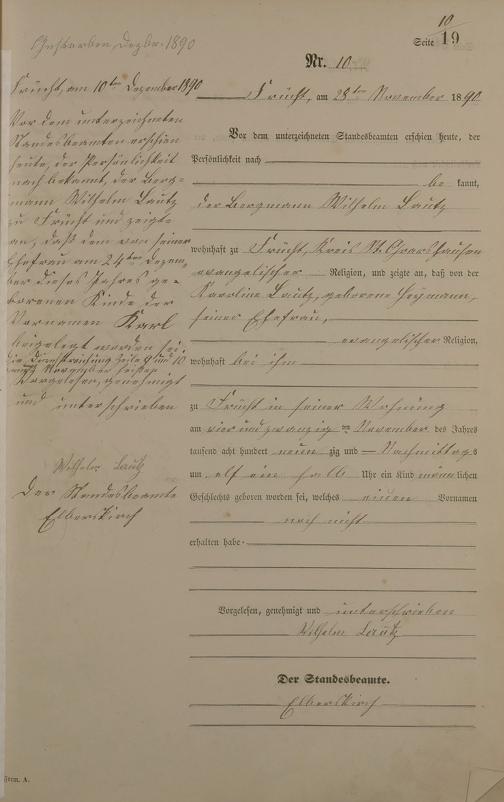 10
Seite 19
Gestorben Dezbr. 1890
Nr. 10
Frücht, am 10ten Dezember 1890
Vor dem unterzeichneten
Standesbeamten erschien
heute, der Persönlichkeit
nach bekannt, der Berg-
mann Wilhelm Lautz
zu Frücht und zeigte
an, daß dem von seiner
Ehefrau am 24ten Dezem-
ber dieses Jahres ge-
borenen Kinde der
Vornamen Karl
beigelegt worden sei.
Zeile 9 und 10
November
Vorgelesen, genehmigt
und unterschrieben
Wilhelm Lautz
Der Standesbeamte
Elberskirch
Frücht, am 28ten November 1890
Vor dem unterzeichneten Standesbeamten erschien heute, der
Persönlichkeit nach
be kannt,
der Bergmann Wilhelm Lautz
wohnhaft zu Frücht, Kreis St. Goarshausen
evangelischer Religion, und zeigte an, daß von der
Karoline Lautz, geborene Heymann,
seiner Ehefrau,
evangelischer Religion,
wohnhaft bei ihm
zu Frücht in seiner Wohnung
am vier und zwanzigten November des Jahres
tausend acht hundert neun zig und Nachmittags
um elf ein halb Uhr ein Kind männlichen
Geschlechts geboren worden sei, welches einen Vornamen
noch nicht
erhalten habe
Vorgelesen, genehmigt und unterschrieben
Wilhelm Lautz
Der Standesbeamte.
Elberskirch
Form. A.